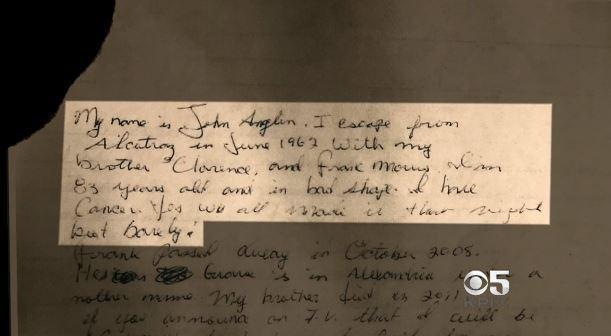 My name is John Anglin. I escape from
Alcatraz in June 1962 With my
brother Clarence, and Frank Morris. I'm
83 years old and in bad shape. I have
Cancer. Yes we all made it that night
but barely!
Frank passed away in October 2008.
His Grave is in Alexandria a
nother name. My brother died in 2011
if you announce on T.V. that I will be
5
KPIX